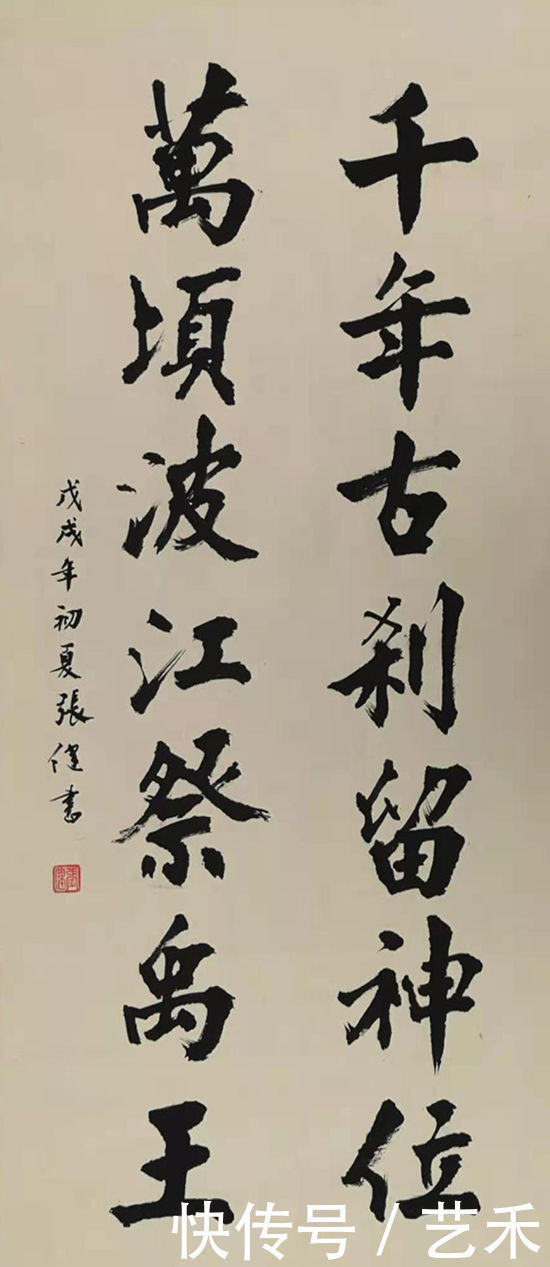 千年古刹留神位
萬頃波江祭禹王
戊戌年初夏張健書
快传号 / 艺禾